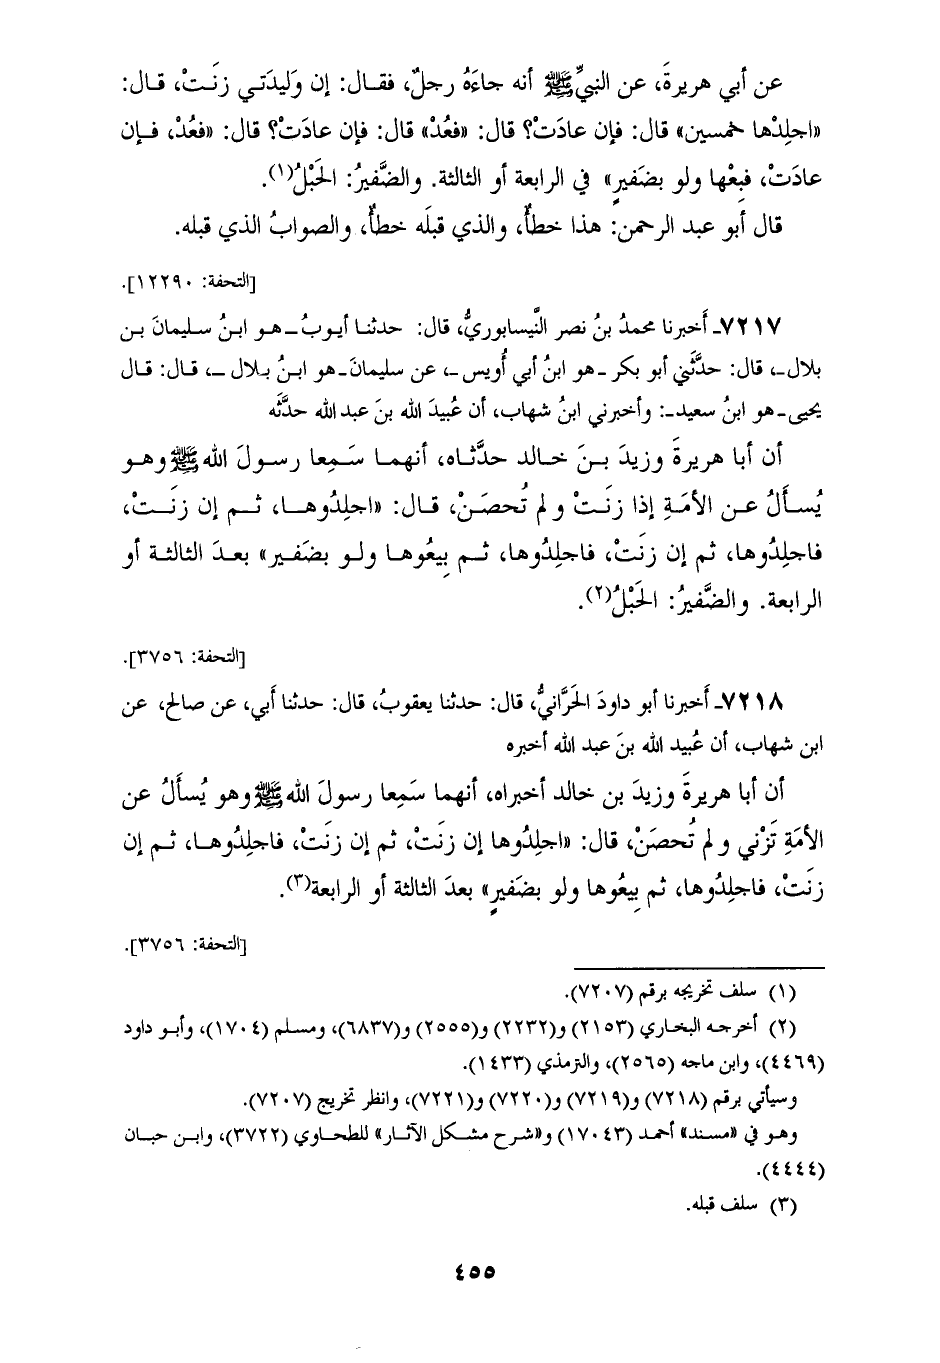 عن أبي هريرةَ، عن النبيِّ ﷺ أنه جاءَهُ رجلٌ، فقال: إن وَليدَتي زنَتْ، قال:
«اجلِدْها خمسين» قال: فإن عادَتْ؟ قال: «فعُدْ» قال: فإن عادَتْ؟ قال: «فعُدْ، فإن
عادَتْ، فبِعْها ولو بضَفيرٍ» في الرابعة أو الثالثة. والضَّفيرُ: الحَبْلُ(١).
قال أبو عبد الرحمن: هذا خطأٌ، والذي قبلَه خطأٌ، والصوابُ الذي قبله.
[التحفة: ١٢٢٩٠].
٧٢١٧ـ أَخبرنا محمدُ بنُ نصر النَّيسابوريُّ، قال: حدثنا أيوبُ ـ هو ابنُ سليمانَ بن
بلال ـ، قال: حدَّثَني أبو بكر ـ هو ابنُ أبي أُويس ـ، عن سليمانَ ـ هو ابنُ بلال ـ، قال: قال
يحيى ـ هو ابنُ سعيد ـ: وأخبرني ابنُ شهاب، أن عُبيدَ الله بنَ عبد الله حدَّثَه
أن أبا هريرةَ وزيدَ بنَ خالد حدَّثاه، أنهما سَمِعا رسولَ الله ﷺ وهو
يُسأَلُ عن الأمَةِ إذا زنَتْ ولم تُحصَنْ، قال: «اجلِدُوها، ثم إن زنَتْ،
فاجلِدُوها، ثم إن زنَتْ، فاجلِدُوها، ثم بِيعُوها ولو بضَفير» بعدَ الثالثة أو
الرابعة. والضَّفيرُ: الحَبْلُ(٢).
[التحفة: ٣٧٥٦].
٧٢١٨ـ أَخبرنا أبو داودَ الحَرَّانيُّ، قال: حدثنا يعقوبُ، قال: حدثنا أَبي، عن صالح، عن
ابن شهاب، أن عُبيد الله بنَ عبد الله أخبره
أن أبا هريرةَ وزيدَ بن خالد أخبراه، أنهما سَمِعا رسولَ الله ﷺ وهو يُسأَلُ عن
الأمَةِ تَزْني ولم تُحصَنْ، قال: «اجلِدُوها إن زنَتْ، ثم إن زنَتْ، فاجلِدُوها، ثم إن
زنَتْ، فاجلِدُوها، ثم بِيعُوها ولو بضَفيرٍ» بعدَ الثالثة أو الرابعة(٣).
[التحفة: ٣٧٥٦].
(١) سلف تخريجه برقم (٧٢٠٧).
(٢) أخرجه البخاري (٢١٥٣) و(٢٢٣٢) و(٢٥٥٥) و(٦٨٣٧)، ومسلم (١٧٠٤)، وأبو داود
(٤٤٦٩)، وابن ماجه (٢٥٦٥)، والترمذي (١٤٣٣).
وسيأتي برقم (٧٢١٨) و(٧٢١٩) و(٧٢٢٠) و(٧٢٢١)، وانظر تخريج (٧٢٠٧).
وهو في «مسند» أحمد (١٧٠٤٣) و«شرح مشكل الآثار» للطحاوي (٣٧٢٢)، وابن حبان
(٤٤٤٤).
(٣) سلف قبله.
٤٥٥